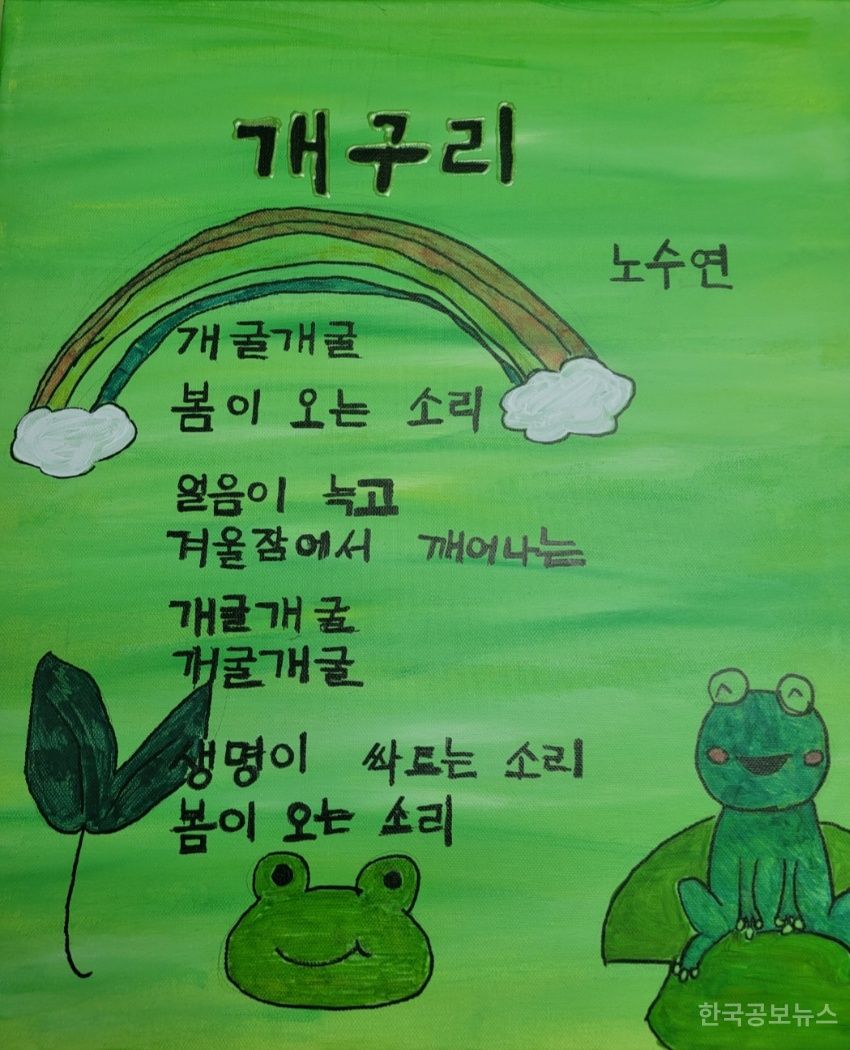 개구리
노수연
개굴개굴
봄이 오는 소리
얼음이 녹고
겨울잠에서 깨어나는
개굴개굴
개굴개굴
생명이 싹트는 소리
봄이 오는 소리
한국공보뉴스